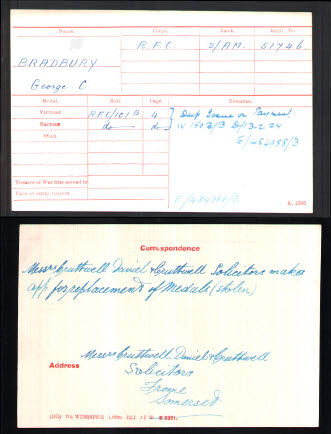 Name. Corps. Rank. Regtl. No.
BRADBURY R.F.C. 2/AM. 51746.
George. C
Medal. Roll Page Remarks.
Victory RFC/101B 4 Dup Issue on Payment
British do do IV 1503/3 D/13.2.24
Star E/484398/3
Theatre of War first served in
Date of entry therein
K. 1380
Correspondence
Messrs Cruttwell Daniel & Cruttwell Solicitors makes
app for replacement of Medals (stolen)
Address Messrs Cruttwell Daniel & Cruttwell
Solicitors
Frome
Somerset